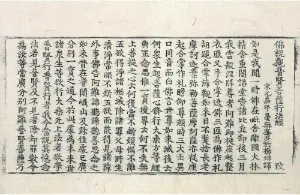 佛說觀普賢菩薩行法經
宋元嘉年曇無蜜多於楊州譯
如是我聞一時佛在毘舍離國大林
精舍重閣講堂告諸比丘却後三月
我當般涅槃尊者阿難即從座起整
衣服叉手合掌遶佛三匝為佛作禮
胡跪合掌諦觀如來目不暫捨長老
摩訶迦葉彌勒菩薩摩訶薩亦從座
起合掌作禮瞻仰尊顏時三大士異
口同音而白佛言世尊如來滅後云
何眾生起菩薩心修行大乘方等經
典正念思惟一實境界云何不失無
上菩提之心云何復當不斷煩惱不離
五欲得淨諸根滅除諸罪父母所生
清淨常眼不斷五欲而能得見諸障
外事佛告阿難諦聽諦聽善思念之
如來昔在耆闍崛山及餘住處已廣
分別一實之道今於此處為未來世
諸眾生等欲行大乘無上法者欲學
普賢行普賢行者我今當說其憶念
法若見普賢及不見者除却罪數今
為汝等當廣分別阿難普賢菩薩乃